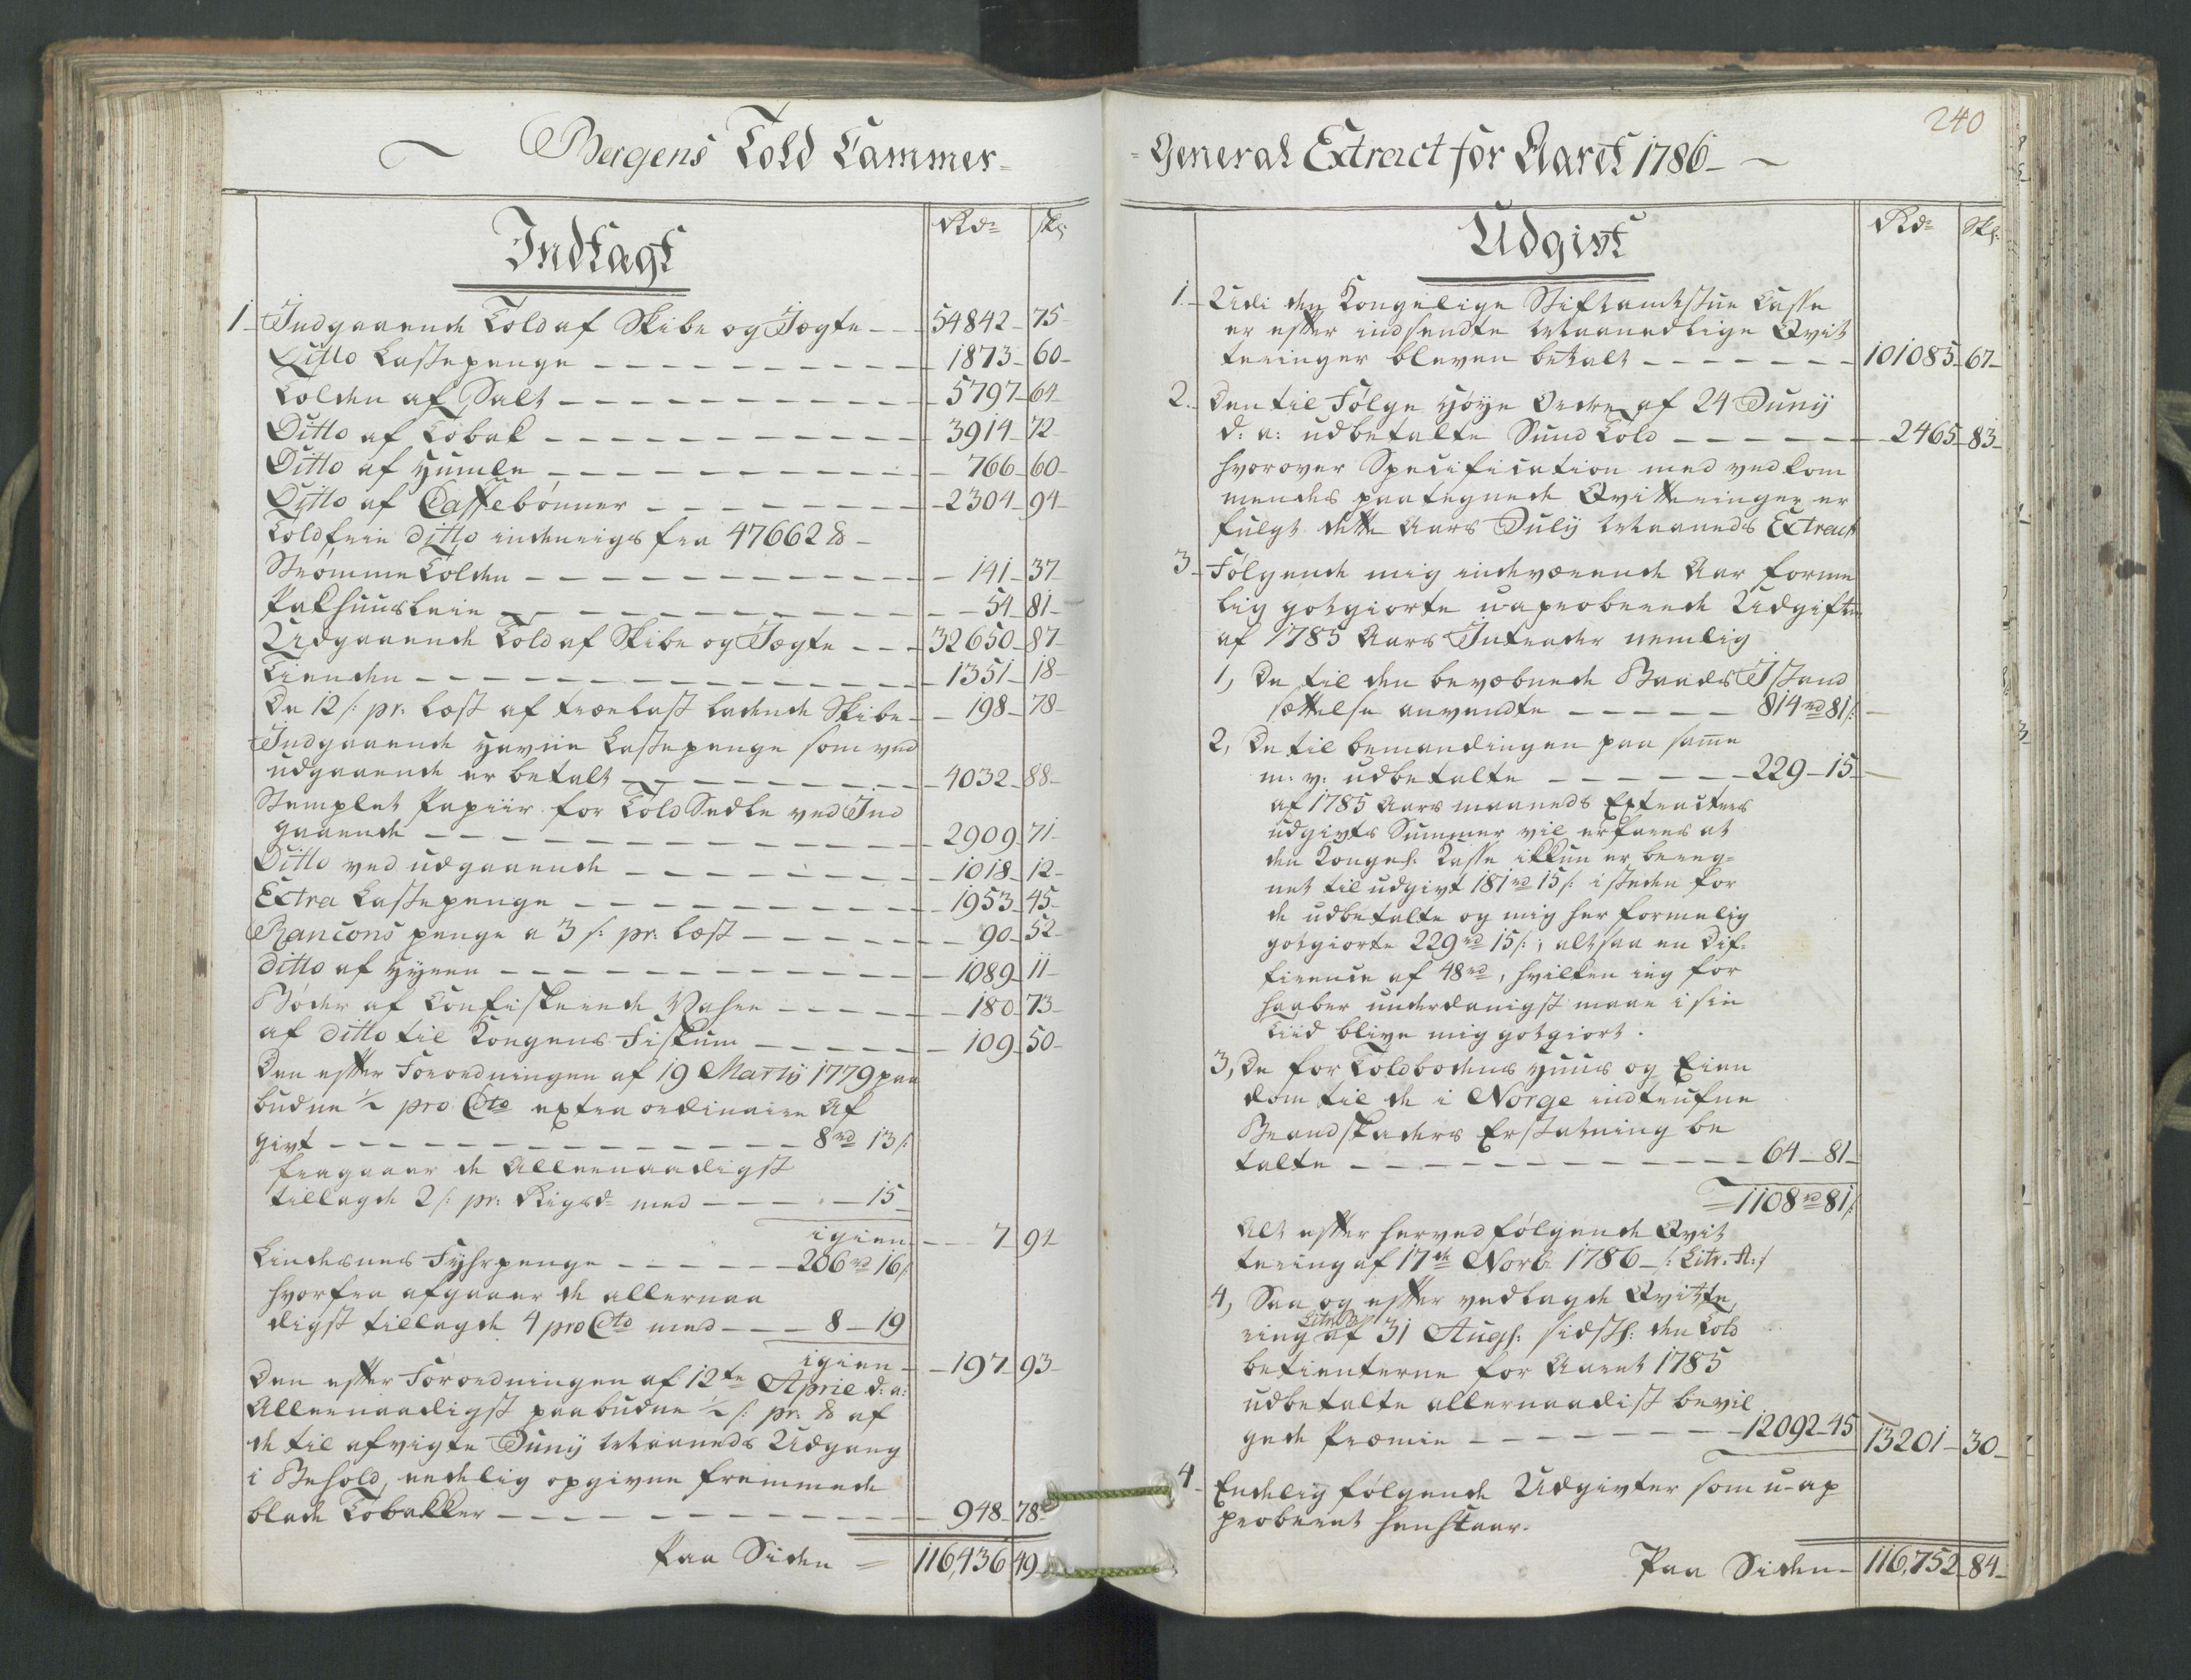 Bergens Told Cammer
Indtægt
Rdr skl:
1 Indgaaende Told af Skibe og Jægte 54842 75
Ditto Lastepenge 1873 60
Tolden af Salt 5797 64
Ditto af Tobak 3914 72
Ditto af Humle 766 60
Ditto af Caffebønner 2304 94
Toldfrie ditto indenrigs fra 47662 ℔
StrømmeTolden 141 37
Pakhuusleie 54 81
Udgaaende Told af Skibe og Jægte 32650 87
Tienden 1351 18
De 12 s: pr: Læst af Trælast ladende Skibe 198 78
Indgaaende Havne Lastepenge som ved
udgaaende er betalt 4032 88
Stemplet Papiir for Told Sedle ved Ind
gaaende 2909 71
Ditto ved udgaaende 1018 12
Extra Lastepenge 1953 45
Rancons penge a 3 s: pr: Læst 90 52
ditto af Hyren 1089 11
Bøder af Confiskerede Vahre 180 73
af ditto til Kongens Fiskum 109 50
Den efter Forordningen af 19 Martÿ 1779 paa
budne ½ pro Cto extra ordinaire Af
givt 8 rd 13 s:
fragaaer de Allernaadigst
tillagde 2 s: pr: Rigsdr med 15
igien 7 94
Lindesnes Fyhrpenge 206 rd 16 s:
hvorfra afgaaer de allernaa
digst tillagde 4 pro Cto med 8 19
igien 197 93
Den efter Forordningen af 12te April d: a:
Allernaadigst paabudne ½ s: pr: ℔ af
de til afvigte Junÿ Maaneds Udgang
i Behold, endelig opgivne fremmede
blade Tobakker 948 78
Paa Siden 116,436 49
240
General Extract for Aaret 1786
Udgivt
Rdr Skl:
1. Udi den Kongelige Stiftamtstue Casse
er efter indsendte Maanedlige Qvit
teringer bleven betalt 101085 67
2. Den til Følge Høye Ordre af 24 Junÿ
d: a: udbetalte Sund Told 2465 83
hvorover Specification med vedkom
mendes paategnede Qvitteringer er
fulgt dette Aars Julÿ Maaneds Extract
3 Følgende mig indeværende Aar forme
lig gotgiorte uaproberede Udgifter
af 1785 Aars Intrader nemlig
1, De til den bevæbnede Baads Istand
sættelse anvendte 814 rd 81 s:
2, De til bemandingen paa same
m: v: udbetalte 229 15
af 1785 Aars maaneds Extracters
udgivts Summer vil erfares at
den Kongel: Kasse ikkun er bereg=
net til udgivt 181 rd 15 s: i steden for
de udbetalte og mig her formelig
gotgiorte 229 rd 15 s:, altsaa en Dif=
ference af 48 rd, hvilken ieg for
haaber underdanigst maae i sin
Tiid blive mig gotgiort.
3, De for Toldbodens Huus og Eien
dom til de i Norge indtrufne
Brandskaders Erstatning be
talte 64 81
1108 rd 81 s:
Alt efter herved følgende Qvit
tering af 17de Novb: 1786 /: Litr: A :/
4, Saa og efter vedlagde Qvitte
Litr: B
ring af 31 Augs: sidstl: den Told
betienterne for Aaret 1785
udbetalte allernaadist bevil
gede Præmie 12092 45 13201 30
4 Endelig følgende Udgivter som u-ap
proberet henstaar.
Paa Siden 116,752 84